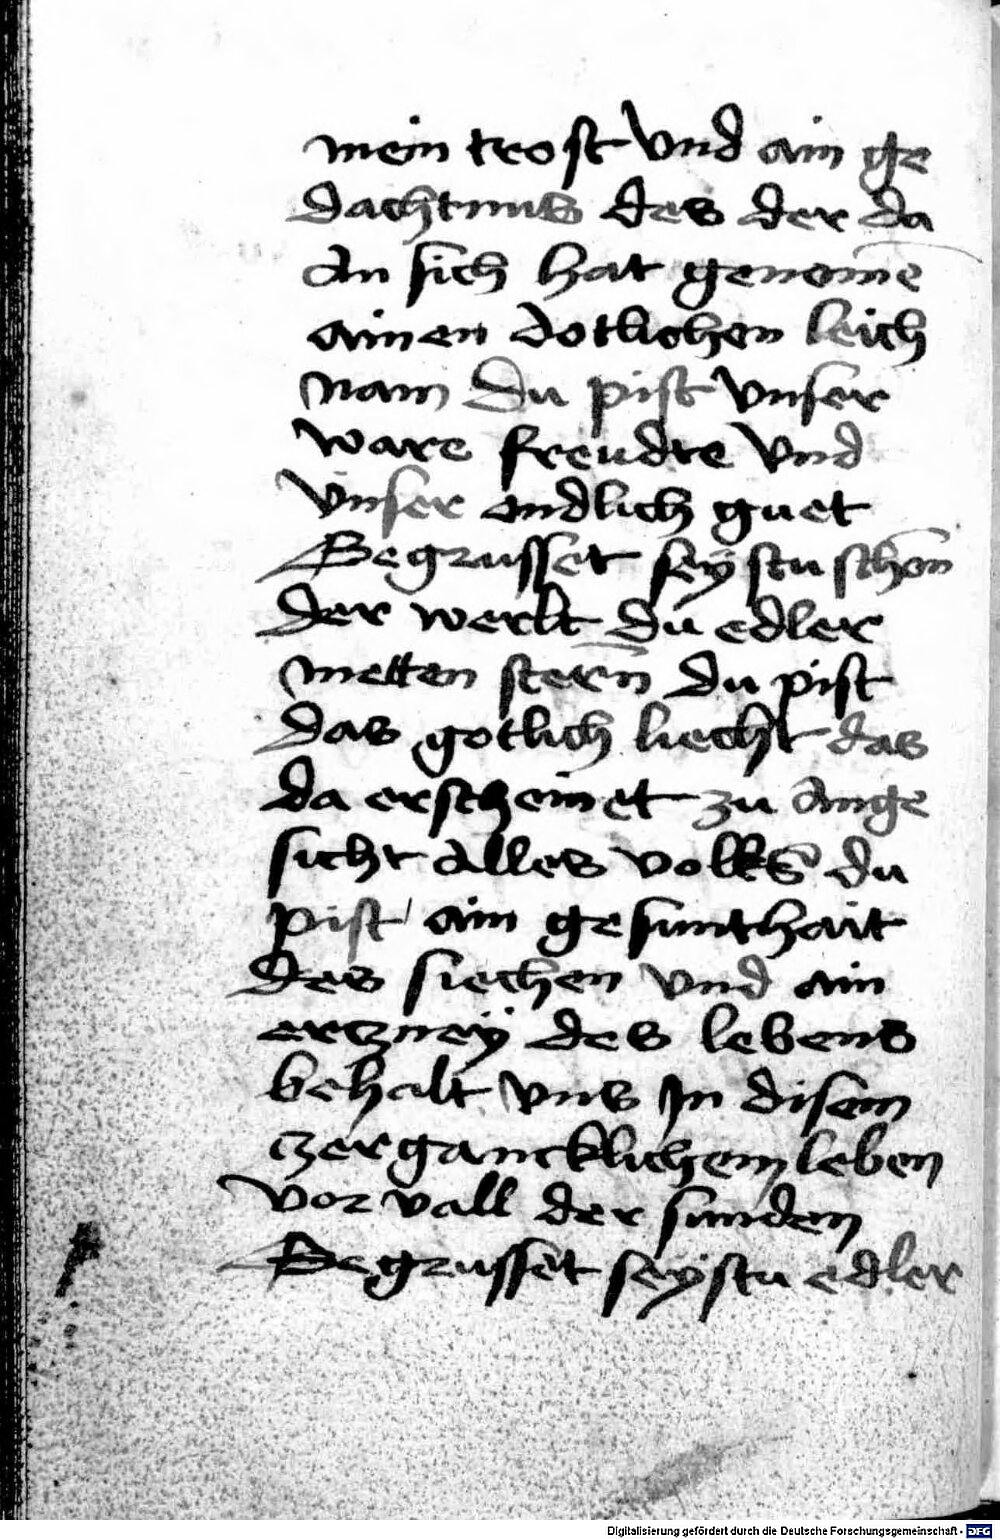 mein trost vnd ain ge
dachtnus des der da
An sich hat genom̄e
ainen dotlichen leich
nam Du pist vnser
ware freudte vnd
vnser endlich guet
Begrusset seÿstu schon̄
der werlt du edler
metten stern̄ du pist
das gotlich liecht das
da erscheinet zu Ange
sicht Alles volks du
pist ain gesunthait
des siechen vnd ain
ertzneÿ des lebens
behalt vns Jn disem
czergancklichem leben
vor vall der sunden
Begrusset seÿstu edler
Digitalisierung gefördert durch die Deutsche Forschungsgemeinschaft - DFG